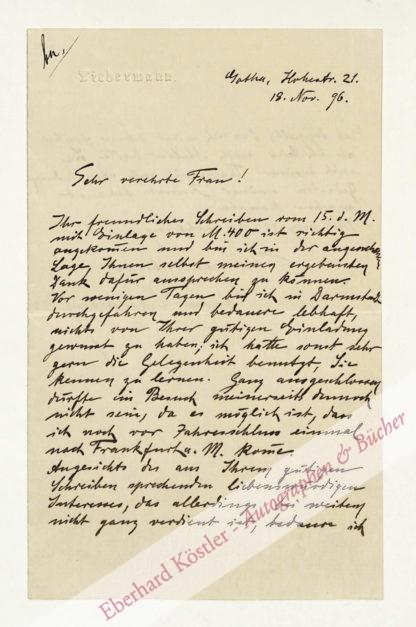 Liebermann.
Gotha, Hohestr. 21.
18. Nov. 96.
Sehr verehrte Frau!
Ihr freundliches Schreiben vom 15. d. M.
mit Einlage von M. 400 ist richtig
angekommen und bin ich in der angenehmen
Lage, Ihnen selbst meinen ergebensten
Dank dafür aussprechen zu können.
Vor wenigen Tagen bin ich in Darmstadt
durchgefahren und bedauere lebhaft,
nichts von Ihrer gütigen Einladung
gewusst zu haben, ich hätte sonst sehr
gern die Gelegenheit benutzt, Sie
kennen zu lernen. Ganz ausgeschlossen
dürfte ein Besuch meinerseits dennoch
nicht sein, da es möglich ist, dass
ich noch vor Jahresschluss einmal
nach Frankfurt a. M. komme.
Angesichts des aus Ihrem gütigen
Schreiben sprechenden liebenswürdigen
Interesses, das allerdings bei weitem
nicht ganz verdient ist, bedauere ich
Eberhard Köstler - Autographen & Bücher